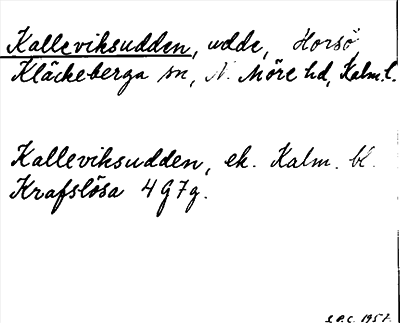 Kalleviksudden, udde, Horsö
Kläckeberga sn, N. Möre hd, Kalm.l.
Kalleviksudden, ek. Kalm. bl.
Krafslösa 4G7g.